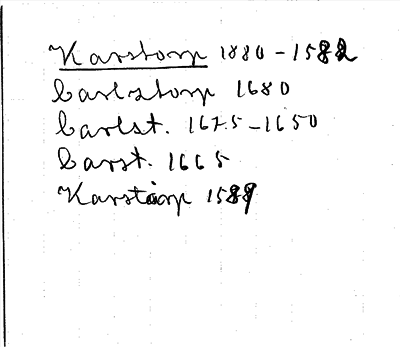 Karstorp 1880-1582
Carlstorp 1680
Carlst. 1675-1650
Carst. 1665
Karstörp 1589